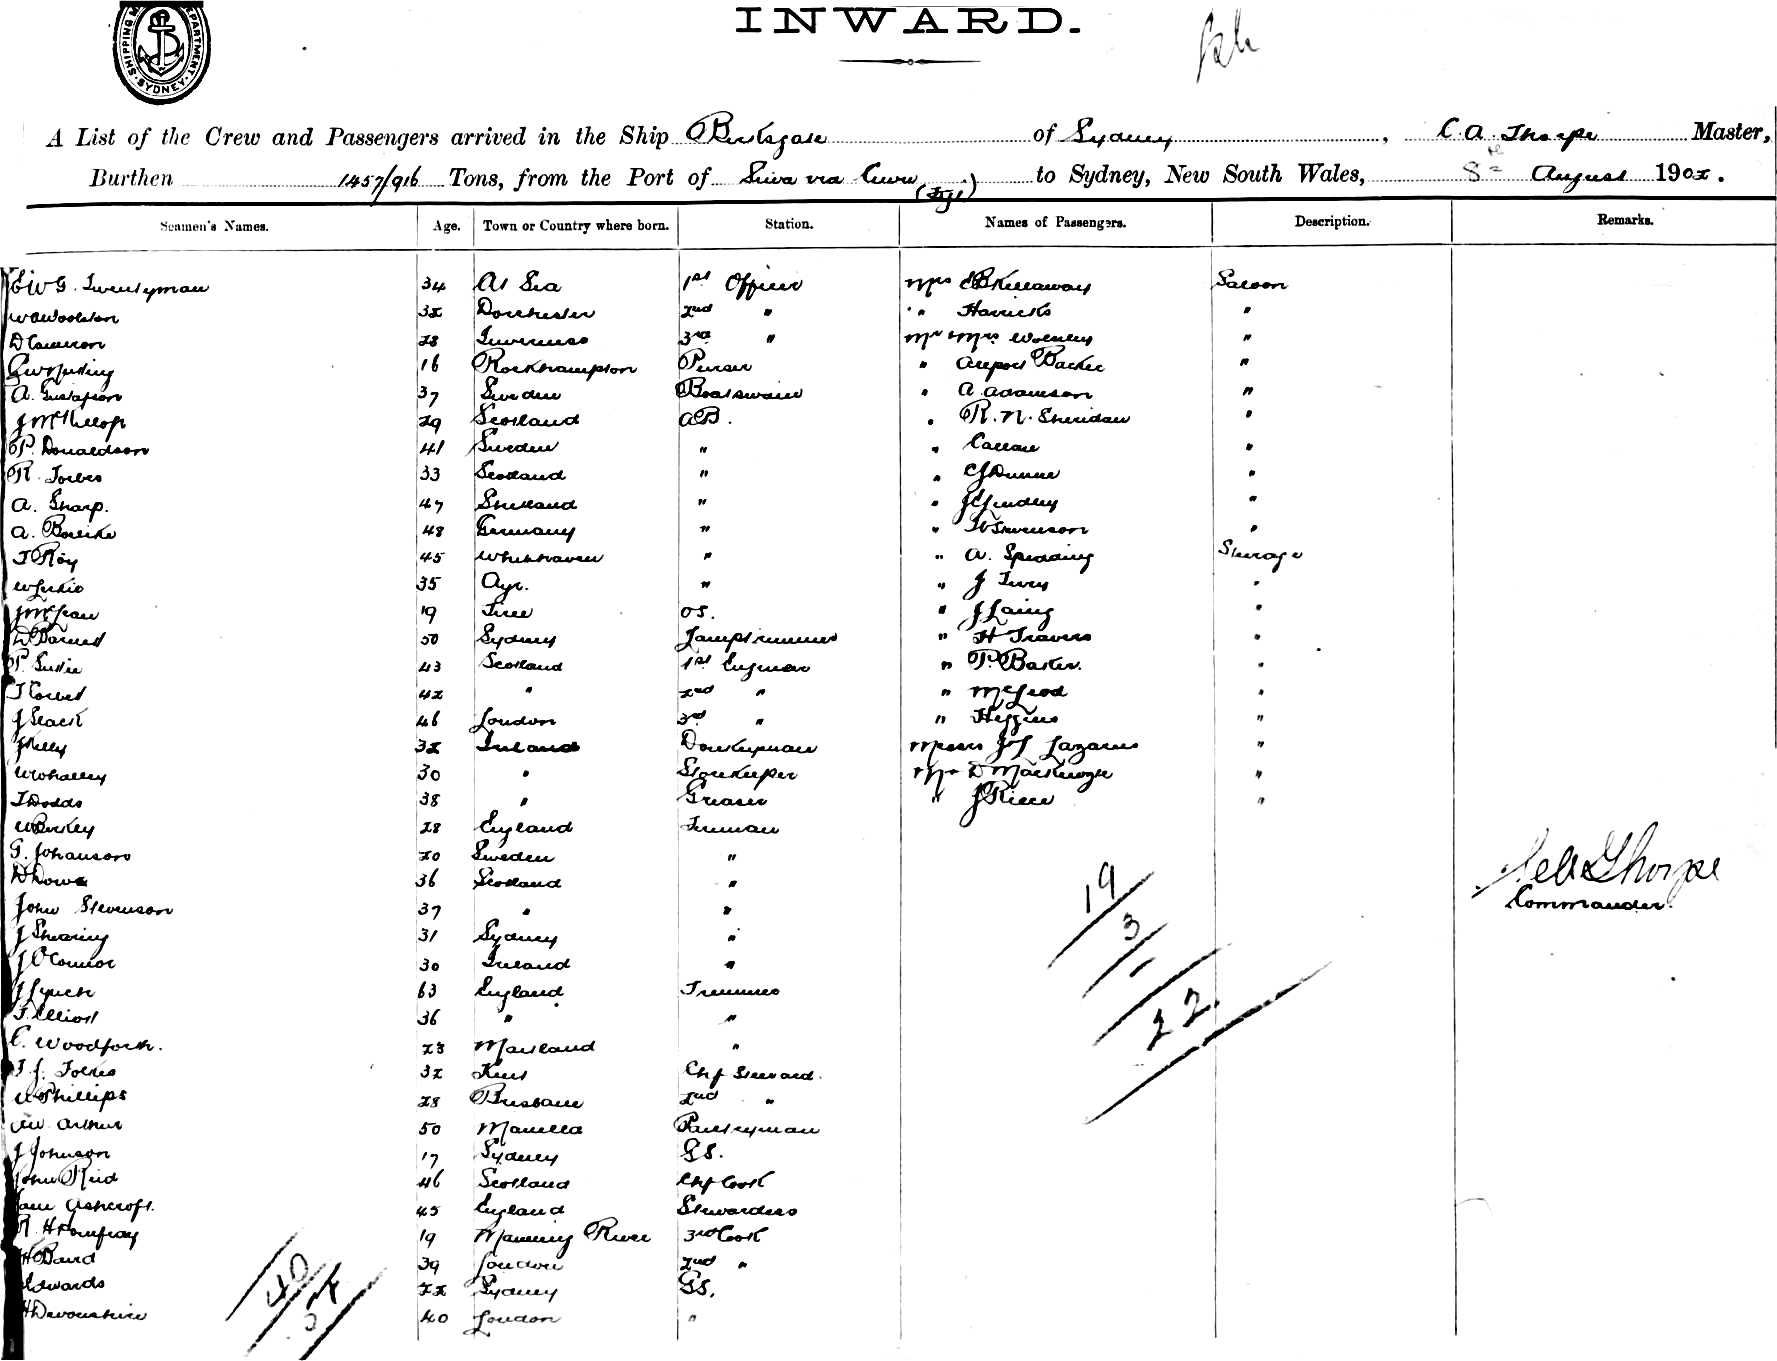 SHIPPING MASTER'S DEPARTMENT. SYDNEY
INWARD.
A List of the Crew and Passengers arrived in the Ship Birksgate of Sydney, C. A. Thorpe Master,
Burthen 1457/916 Tons, from the Port of Suva via (Fiji) to Sydney, New South Wales, 8th August 1902.
Seamen's Names. Age. Town or Country where born. Station. Names of Passengers. Description. Remarks.
Twentyman 34 At Sea 1st Officer Mrs Killaway Saloon
W Woolston 32 Dorchester 2nd " " Harricks "
D Cameron 28 Inverness 3rd " Mr & Mrs "
16 Rockhampton Purser " Backer "
A. Gustafson 37 Sweden Boatswain " A Adamson "
J McKillop 29 Scotland AB. " R. N. Sheridan "
P. Donaldson 41 Sweden " " Callan "
R. Forbes 33 Scotland " " CJ Dunne "
A. Sharp. 47 Shetland " " "
A. 48 Germany " " Stevenson "
T Roy 45 Whitehaven " " A. Spedding Steerage
W Leckie 35 Ayr. " " J "
J McLean 19 Tiree OS. " J Laing "
D Barnet 50 Sydney Lamptrimmer " H Travers "
P. 43 Scotland 1st Engineer " P. Baker. "
42 " 2nd " " McLeod "
J Slack 46 London 3rd " " Higgins "
J Kelly 32 Ireland Donkeyman Messrs J & J Lazarus "
W Whalley 30 " Storekeeper Mrs D MacKenzie "
T Dodds 38 " Greaser " J "
W 28 England Fireman
G. Johanson 20 Sweden "
D Dowe 36 Scotland "
John Stevenson 37 " "
J Shearing 31 Sydney "
J O'Connor 30 Ireland "
J Lynch 63 England Trimmer
T. Elliott 36 " "
C. Woodforth. 23 Maitland "
T. J. 32 Kent Chf Steward.
Phillips 28 Brisbane 2nd "
Arthur 50 Manilla Pantryman
J Johnson 17 Sydney GS.
John Reid 46 Scotland Chf Cook
Jane Ashcroft. 45 England Stewardess
R. H Pomfray 19 Manning River 3rd Cook
H Baird 39 London 2nd "
Edwards 22 Sydney GS.
H Devonshire 40 London "
19
3
22
C A Thorpe
Commander.
40